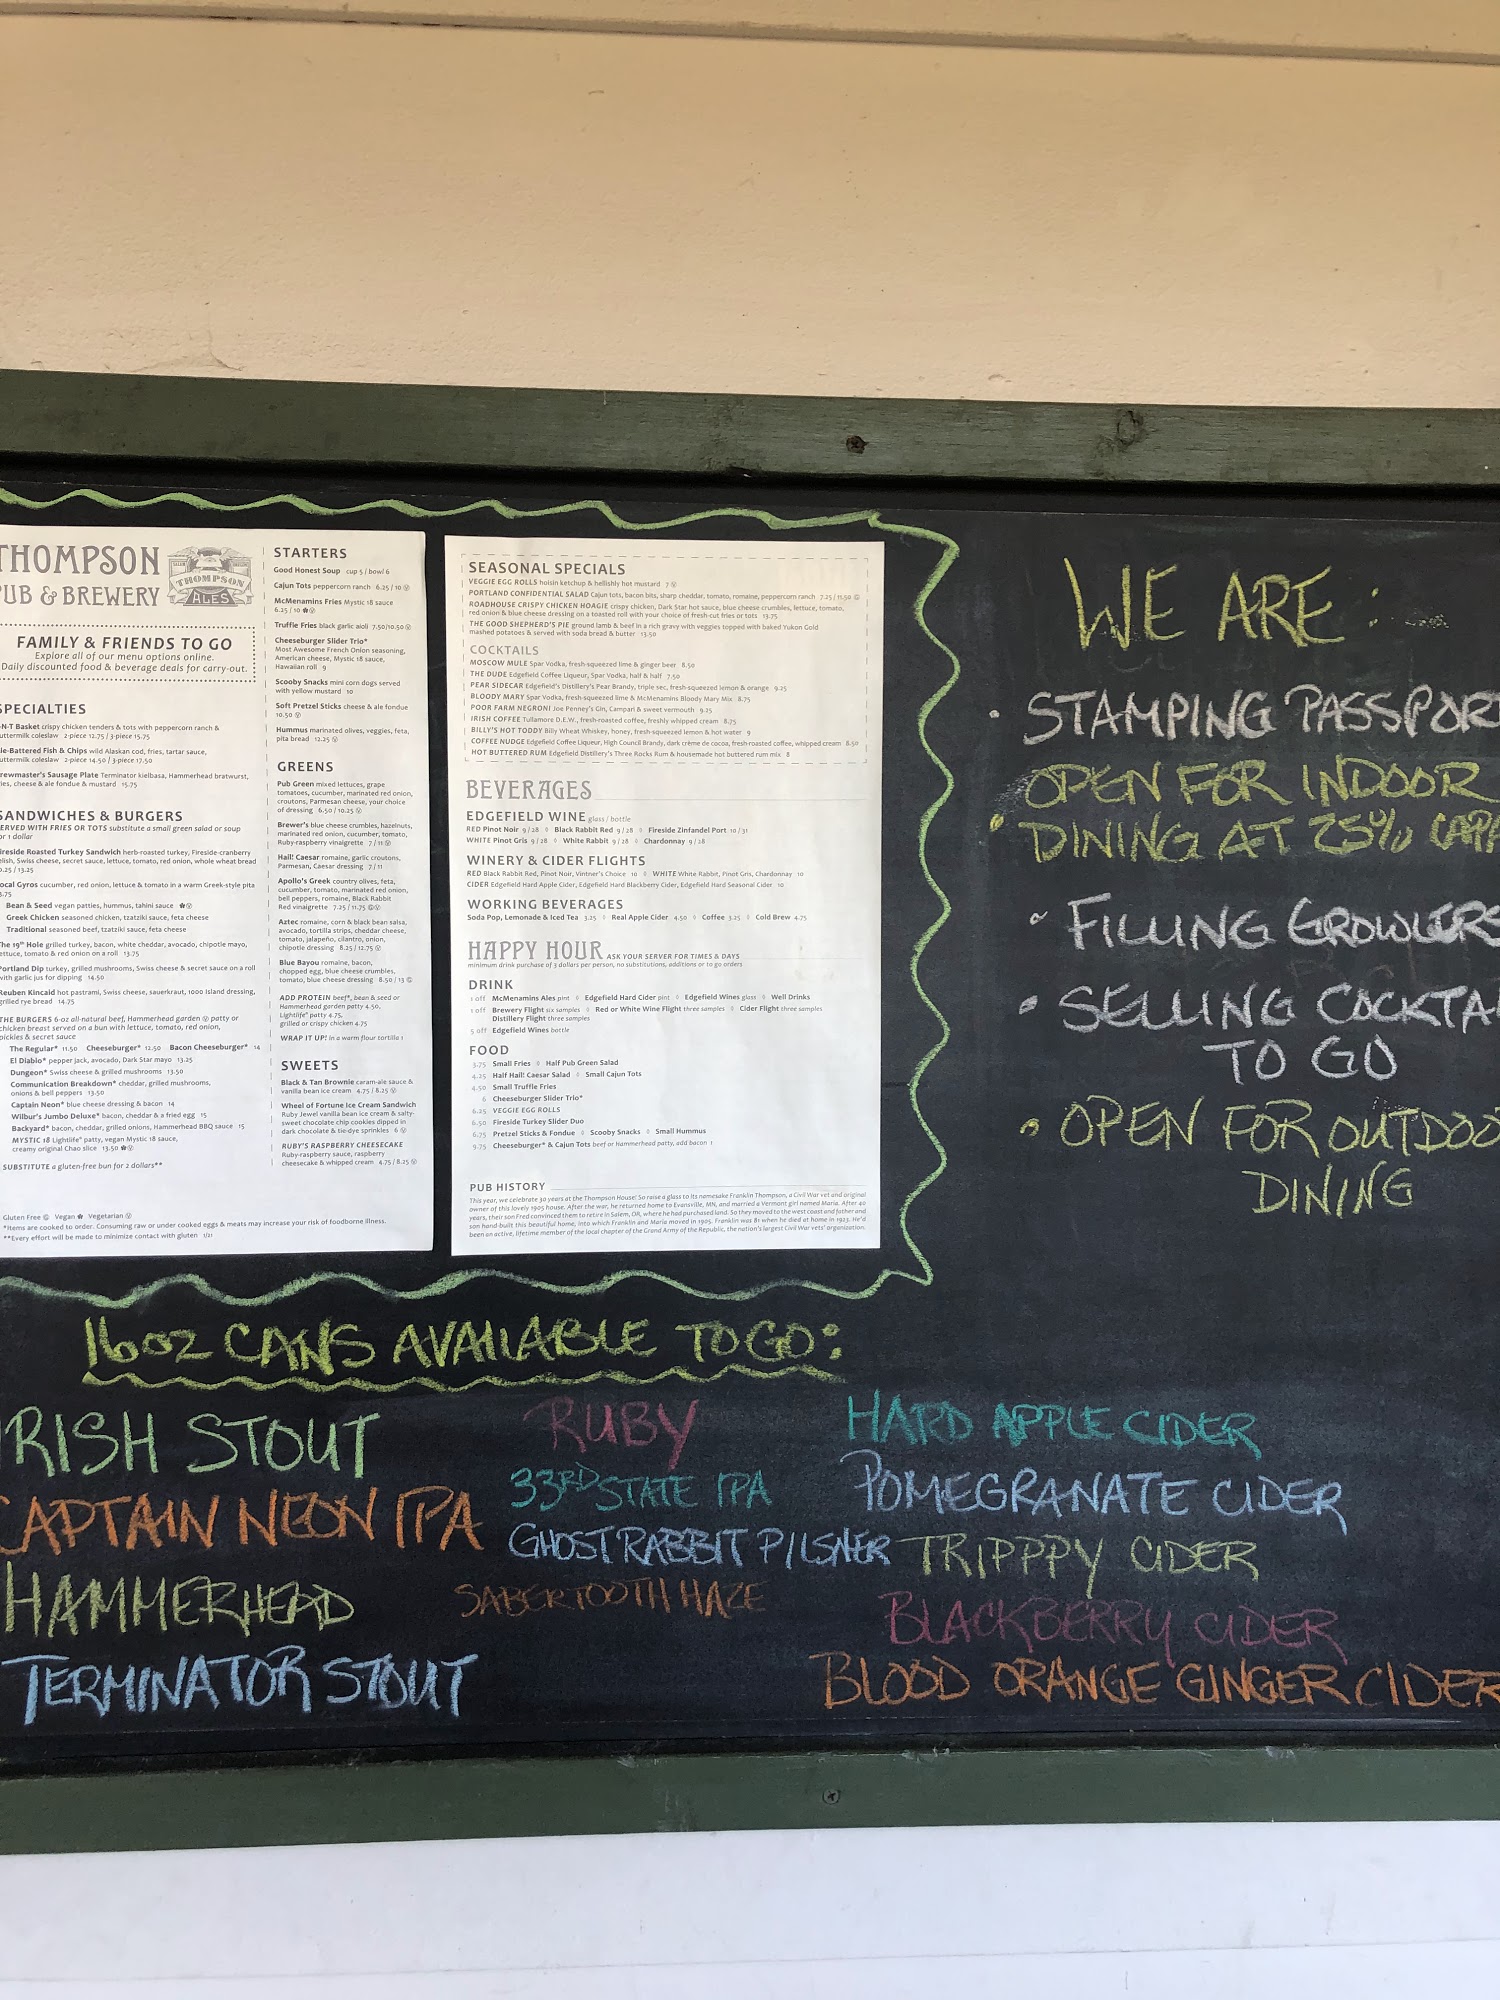 THOMPSON
PUB & BREWERY
THOMPSON
ALES
FAMILY & FRIENDS TO GO
Explore all of our menu options online.
Daily discounted food & beverage deals for carry-out.
SPECIALTIES
-N-T Basket crispy chicken tenders & tots with peppercorn ranch &
uttermilk coleslaw 2-piece 12.75 / 3-piece 15.75
le-Battered Fish & Chips wild Alaskan cod, fries, tartar sauce,
uttermilk coleslaw 2-piece 14.50 / 3-piece 17.50
rewmaster's Sausage Plate Terminator kielbasa, Hammerhead bratwurst,
ries, cheese & ale fondue & mustard 15.75
SANDWICHES & BURGERS
ERVED WITH FRIES OR TOTS substitute a small green salad or soup
or 1 dollar
ireside Roasted Turkey Sandwich herb-roasted turkey, Fireside-cranberry
elish, Swiss cheese, secret sauce, lettuce, tomato, red onion, whole wheat bread
0.25 / 13.25
ocal Gyros cucumber, red onion, lettuce & tomato in a warm Greek-style pita
3.75
Bean & Seed vegan patties, hummus, tahini sauce
Greek Chicken seasoned chicken, tzatziki sauce, feta cheese
Traditional seasoned beef, tzatziki sauce, feta cheese
The 19th Hole grilled turkey, bacon, white cheddar, avocado, chipotle mayo,
ettuce, tomato & red onion on a roll 13.75
Portland Dip turkey, grilled mushrooms, Swiss cheese & secret sauce on a roll
with garlic jus for dipping 14.50
Reuben Kincaid hot pastrami, Swiss cheese, sauerkraut, 1000 Island dressing,
grilled rye bread 14.75
THE BURGERS 6-oz all-natural beef, Hammerhead garden Ⓥ patty or
chicken breast served on a bun with lettuce, tomato, red onion,
pickles & secret sauce
The Regular* 11.50 Cheeseburger* 12.50 Bacon Cheeseburger* 14
El Diablo* pepper jack, avocado, Dark Star mayo 13.25
Dungeon* Swiss cheese & grilled mushrooms 13.50
Communication Breakdown* cheddar, grilled mushrooms,
onions & bell peppers 13.50
Captain Neon* blue cheese dressing & bacon 14
Wilbur's Jumbo Deluxe* bacon, cheddar & a fried egg 15
Backyard* bacon, cheddar, grilled onions, Hammerhead BBQ sauce 15
MYSTIC 18 Lightlife® patty, vegan Mystic 18 sauce,
creamy original Chao slice 13.50
SUBSTITUTE a gluten-free bun for 2 dollars**
Gluten Free Ⓖ Vegan Vegetarian Ⓥ
*Items are cooked to order. Consuming raw or under cooked eggs & meats may increase your risk of foodborne illness.
**Every effort will be made to minimize contact with gluten 1/21
STARTERS
Good Honest Soup cup 5 / bowl 6
Cajun Tots peppercorn ranch 6.25 / 10 Ⓥ
McMenamins Fries Mystic 18 sauce
6.25 / 10
Truffle Fries black garlic aioli 7.50/10.50 Ⓥ
Cheeseburger Slider Trio*
Most Awesome French Onion seasoning,
American cheese, Mystic 18 sauce,
Hawaiian roll 9
Scooby Snacks mini corn dogs served
with yellow mustard 10
Soft Pretzel Sticks cheese & ale fondue
10.50 Ⓥ
Hummus marinated olives, veggies, feta,
pita bread 12.25 Ⓥ
GREENS
Pub Green mixed lettuces, grape
tomatoes, cucumber, marinated red onion,
croutons, Parmesan cheese, your choice
of dressing 6.50 / 10.25 Ⓥ
Brewer's blue cheese crumbles, hazelnuts,
marinated red onion, cucumber, tomato,
Ruby-raspberry vinaigrette 7 / 11 Ⓥ
Hail! Caesar romaine, garlic croutons,
Parmesan, Caesar dressing 7 / 11
Apollo's Greek country olives, feta,
cucumber, tomato, marinated red onion,
bell peppers, romaine, Black Rabbit
Red vinaigrette 7.25 / 11.75 ⒼⓋ
Aztec romaine, corn & black bean salsa,
avocado, tortilla strips, cheddar cheese,
tomato, jalapeño, cilantro, onion,
chipotle dressing 8.25 / 12.75 Ⓥ
Blue Bayou romaine, bacon,
chopped egg, blue cheese crumbles,
tomato, blue cheese dressing 8.50 / 13 Ⓖ
ADD PROTEIN beef*, bean & seed or
Hammerhead garden patty 4.50,
Lightlife® patty 4.75,
grilled or crispy chicken 4.75
WRAP IT UP! in a warm flour tortilla 1
SWEETS
Black & Tan Brownie caram-ale sauce &
vanilla bean ice cream 4.75 / 8.25 Ⓥ
Wheel of Fortune Ice Cream Sandwich
Ruby Jewel vanilla bean ice cream & salty-
sweet chocolate chip cookies dipped in
dark chocolate & tie-dye sprinkles 6 Ⓥ
RUBY'S RASPBERRY CHEESECAKE
Ruby-raspberry sauce, raspberry
cheesecake & whipped cream 4.75 / 8.25 Ⓥ
SEASONAL SPECIALS
VEGGIE EGG ROLLS hoisin ketchup & hellishly hot mustard 7 Ⓥ
PORTLAND CONFIDENTIAL SALAD Cajun tots, bacon bits, sharp cheddar, tomato, romaine, peppercorn ranch 7.25 / 11.50 Ⓖ
ROADHOUSE CRISPY CHICKEN HOAGIE crispy chicken, Dark Star hot sauce, blue cheese crumbles, lettuce, tomato,
red onion & blue cheese dressing on a toasted roll with your choice of fresh-cut fries or tots 13.75
THE GOOD SHEPHERD'S PIE ground lamb & beef in a rich gravy with veggies topped with baked Yukon Gold
mashed potatoes & served with soda bread & butter 13.50
COCKTAILS
MOSCOW MULE Spar Vodka, fresh-squeezed lime & ginger beer 8.50
THE DUDE Edgefield Coffee Liqueur, Spar Vodka, half & half 7.50
PEAR SIDECAR Edgefield's Distillery's Pear Brandy, triple sec, fresh-squeezed lemon & orange 9.25
BLOODY MARY Spar Vodka, fresh-squeezed lime & McMenamins Bloody Mary Mix 8.75
POOR FARM NEGRONI Joe Penney's Gin, Campari & sweet vermouth 9.25
IRISH COFFEE Tullamore D.E.W., fresh-roasted coffee, freshly whipped cream 8.75
BILLY'S HOT TODDY Billy Wheat Whiskey, honey, fresh-squeezed lemon & hot water 9
COFFEE NUDGE Edgefield Coffee Liqueur, High Council Brandy, dark crème de cocoa, fresh-roasted coffee, whipped cream 8.50
HOT BUTTERED RUM Edgefield Distillery's Three Rocks Rum & housemade hot buttered rum mix 8
BEVERAGES
EDGEFIELD WINE glass / bottle
RED Pinot Noir 9 / 28 ◊ Black Rabbit Red 9 / 28 ◊ Fireside Zinfandel Port 10 / 31
WHITE Pinot Gris 9 / 28 ◊ White Rabbit 9 / 28 ◊ Chardonnay 9 / 28
WINERY & CIDER FLIGHTS
RED Black Rabbit Red, Pinot Noir, Vintner's Choice 10 ◊ WHITE White Rabbit, Pinot Gris, Chardonnay 10
CIDER Edgefield Hard Apple Cider, Edgefield Hard Blackberry Cider, Edgefield Hard Seasonal Cider 10
WORKING BEVERAGES
Soda Pop, Lemonade & Iced Tea 3.25 ◊ Real Apple Cider 4.50 ◊ Coffee 3.25 ◊ Cold Brew 4.75
HAPPY HOUR ASK YOUR SERVER FOR TIMES & DAYS
minimum drink purchase of 3 dollars per person, no substitutions, additions or to go orders
DRINK
1 off McMenamins Ales pint ◊ Edgefield Hard Cider pint ◊ Edgefield Wines glass ◊ Well Drinks
1 off Brewery Flight six samples ◊ Red or White Wine Flight three samples ◊ Cider Flight three samples
Distillery Flight three samples
5 off Edgefield Wines bottle
FOOD
3.75 Small Fries ◊ Half Pub Green Salad
4.25 Half Hail! Caesar Salad ◊ Small Cajun Tots
4.50 Small Truffle Fries
6 Cheeseburger Slider Trio*
6.25 VEGGIE EGG ROLLS
6.50 Fireside Turkey Slider Duo
6.75 Pretzel Sticks & Fondue ◊ Scooby Snacks ◊ Small Hummus
9.75 Cheeseburger* & Cajun Tots beef or Hammerhead patty, add bacon 1
PUB HISTORY
This year, we celebrate 30 years at the Thompson House! So raise a glass to its namesake Franklin Thompson, a Civil War vet and original
owner of this lovely 1905 house. After the war, he returned home to Evansville, MN, and married a Vermont girl named Maria. After 40
years, their son Fred convinced them to retire in Salem, OR, where he had purchased land. So they moved to the west coast and father and
son hand-built this beautiful home, into which Franklin and Maria moved in 1905. Franklin was 81 when he died at home in 1923. He'd
been an active, lifetime member of the local chapter of the Grand Army of the Republic, the nation's largest Civil War vets' organization.
WE ARE:
• STAMPING PASSPOR
OPEN FOR INDOOR
• DINING AT 25% CAPA
~ FILLING GROWLERS
• SELLING COCKTA
TO GO
• OPEN FOR OUTDOO
DINING
16oz CANS AVAILABLE TO GO:
IRISH STOUT
CAPTAIN NEON IPA
HAMMERHEAD
TERMINATOR STOUT
RUBY
33RD STATE IPA
GHOST RABBIT PILSNER
SABERTOOTH HAZE
HARD APPLE CIDER
POMEGRANATE CIDER
TRIPPPY CIDER
BLACKBERRY CIDER
BLOOD ORANGE GINGER CIDER